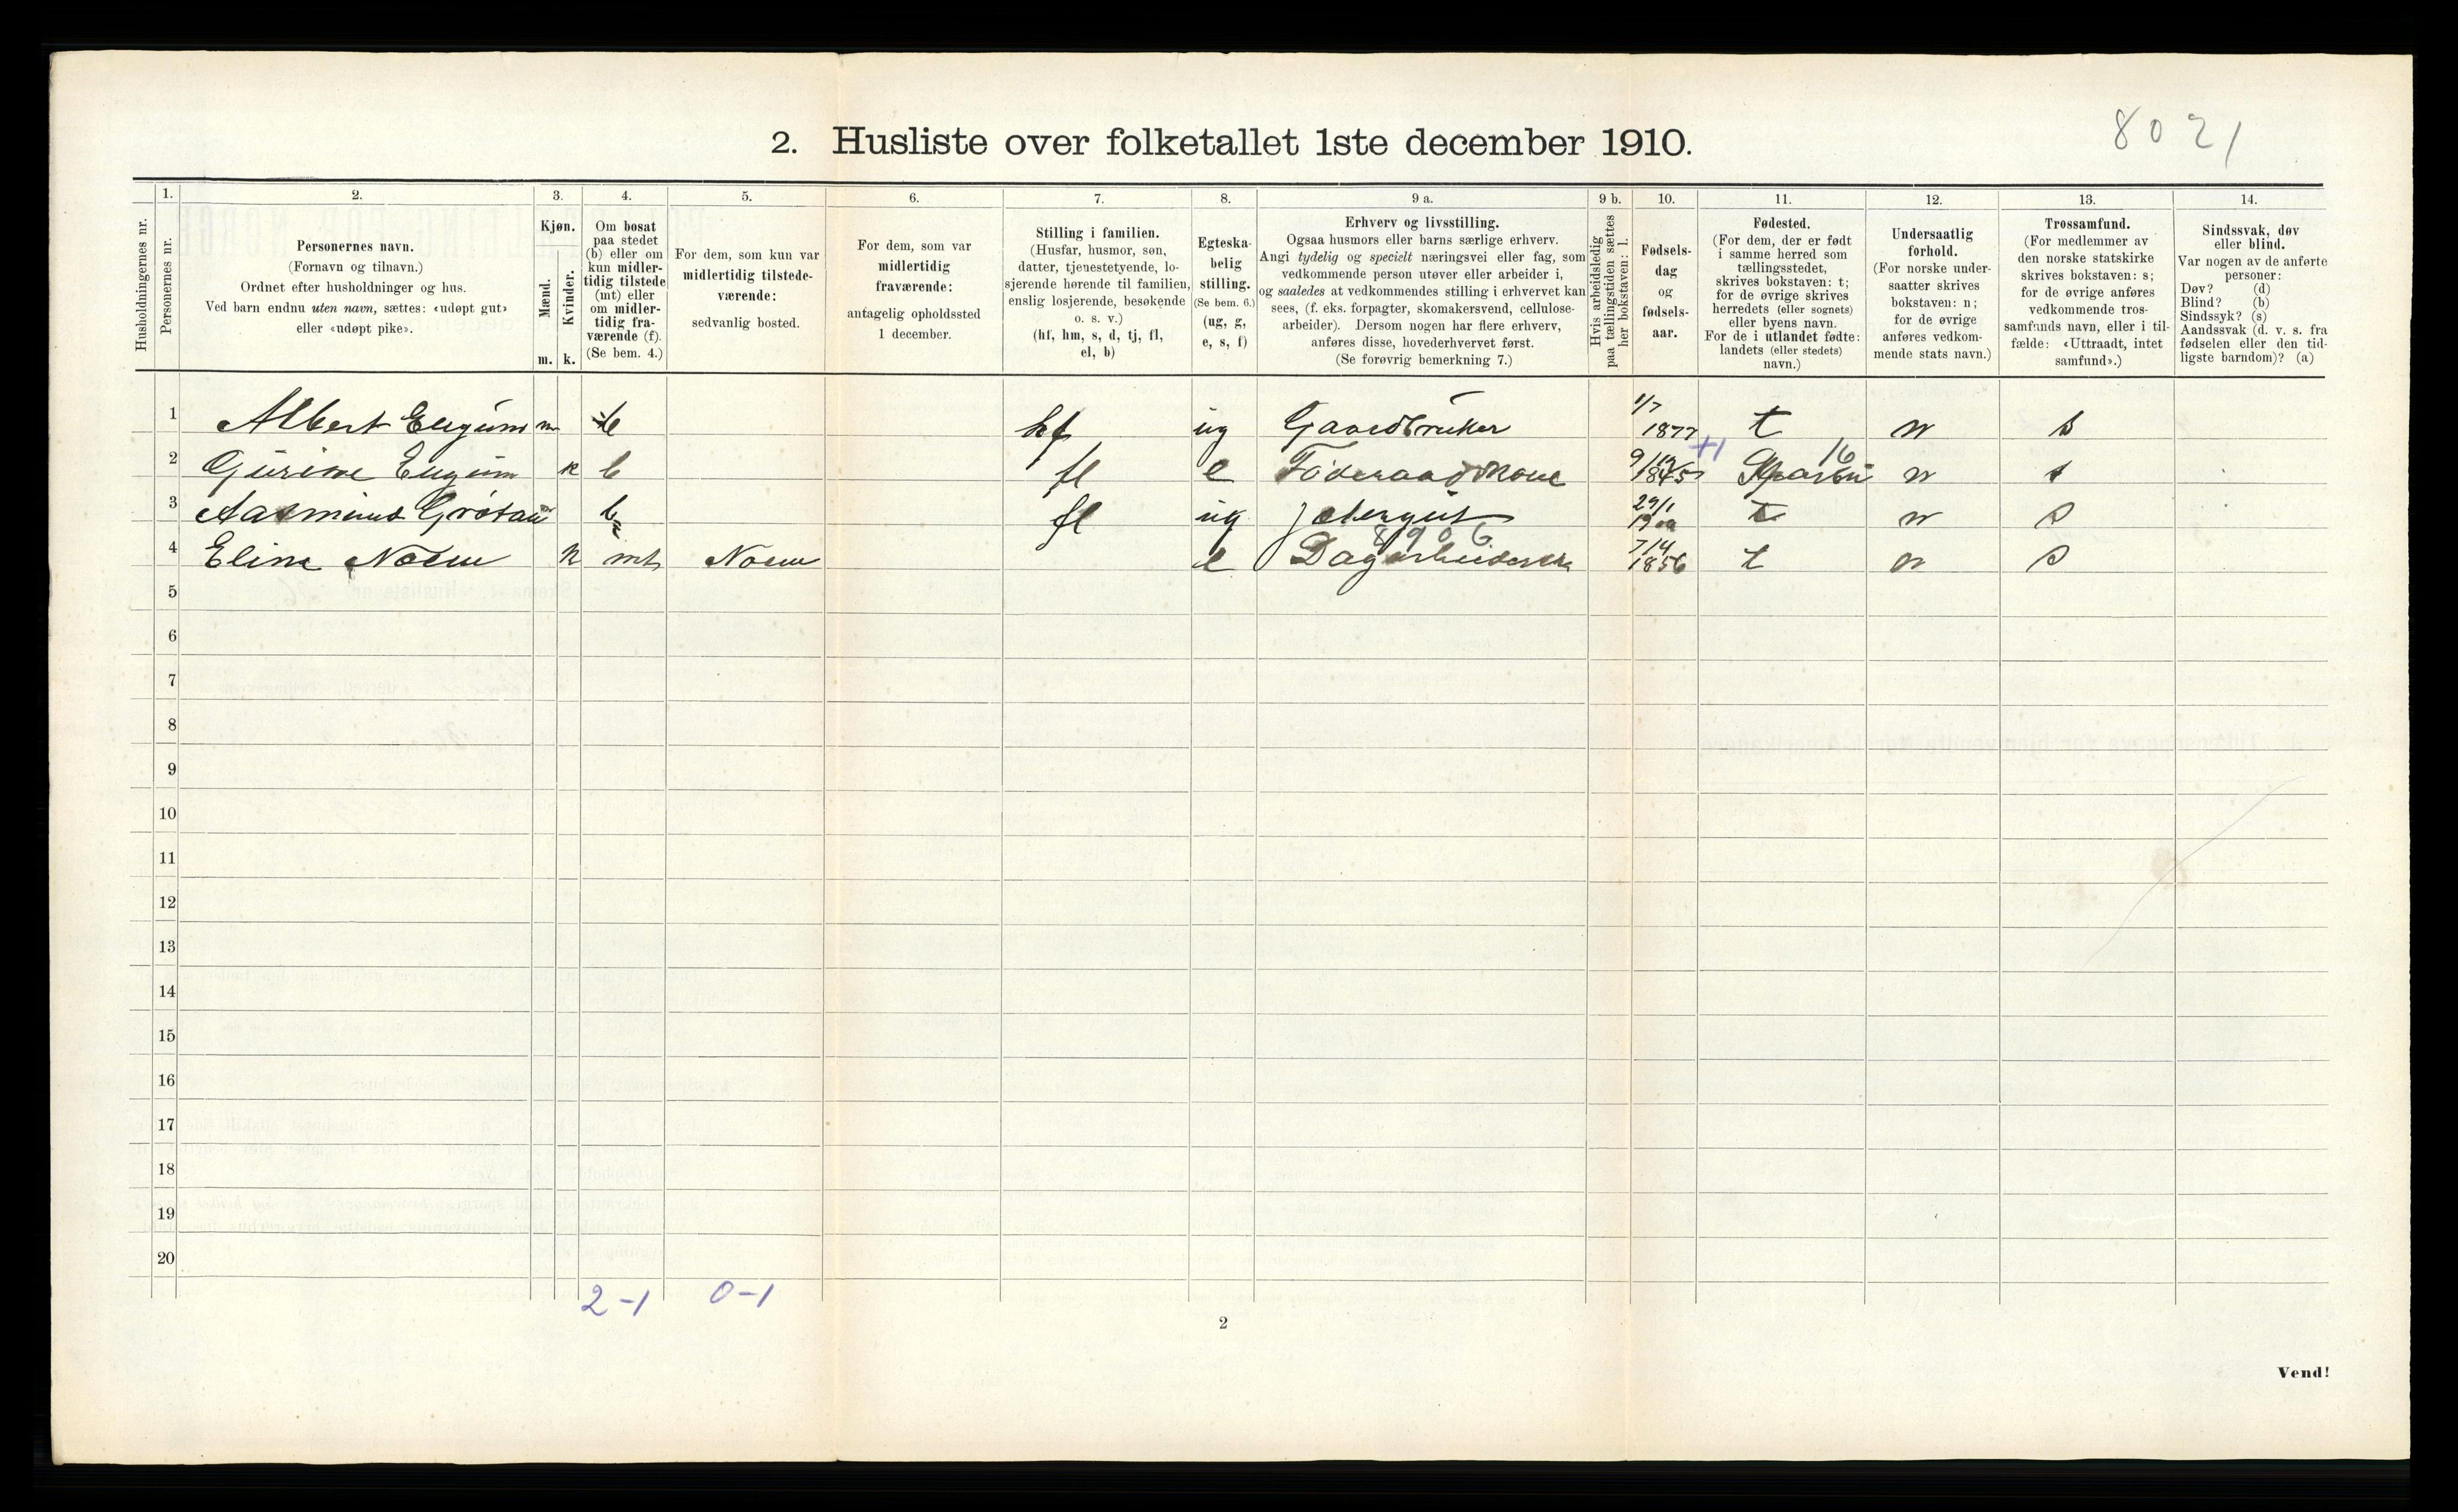 8021
2. Husliste over folketallet 1ste december 1910.
Husholdningernes nr.
1. Personernes nr.
2. Personernes navn. (Fornavn og tilnavn.) Ordnet efter husholdninger og hus. Ved barn endnu uten navn, sættes: «udøpt gut» eller «udøpt pike».
3. Kjøn. Mænd. m. Kvinder. k.
4. Om bosat paa stedet (b) eller om kun midlertidig tilstede (mt) eller om midlertidig fraværende (f). (Se bem. 4.)
5. For dem, som kun var midlertidig tilstedeværende: sedvanlig bosted.
6. For dem, som var midlertidig fraværende: antagelig opholdssted 1 december.
7. Stilling i familien. (Husfar, husmor, søn, datter, tjenestetyende, losjerende hørende til familien, enslig losjerende, besøkende o. s. v.) (hf, hm, s, d, tj, fl, el, b)
8. Egteskabelig stilling. (Se bem. 6.) (ug, g, e, s, f)
9 a. Erhverv og livsstilling. Ogsaa husmors eller barns særlige erhverv. Angi tydelig og specielt næringsvei eller fag, som vedkommende person utøver eller arbeider i, og saaledes at vedkommendes stilling i erhvervet kan sees, (f. eks. forpagter, skomakersvend, cellulosearbeider). Dersom nogen har flere erhverv, anføres disse, hovederhvervet først. (Se forøvrig bemerkning 7.)
9 b. Hvis arbeidsledig paa tællingstiden sættes her bokstaven: l.
10. Fødselsdag og fødselsaar.
11. Fødested. (For dem, der er født i samme herred som tællingsstedet, skrives bokstaven: t; for de øvrige skrives herredets (eller sognets) eller byens navn. For de i utlandet fødte: landets (eller stedets) navn.)
12. Undersaatlig forhold. (For norske undersaatter skrives bokstaven: n; for de øvrige anføres vedkommende stats navn.)
13. Trossamfund. (For medlemmer av den norske statskirke skrives bokstaven: s; for de øvrige anføres vedkommende trossamfunds navn, eller i tilfælde: «Uttraadt, intet samfund».)
14. Sindssvak, døv eller blind. Var nogen av de anførte personer: Døv? (d) Blind? (b) Sindssyk? (s) Aandssvak (d. v. s. fra fødselen eller den tidligste barndom)? (a)
1 Albert m b hf ug Gaardbruker 1/7 1877 t n s
2 k b fl e Föderaadskone 9/12 +1 Sparbu 16 n s
3 Aasmund b fl ug 29/1 t n s
8906
4 Eline Noem k mt Noem e 7/4 1856 t n s
5
6
7
8
9
10
11
12
13
14
15
16
17
18
19
20
2-1 0-1
2
Vend!